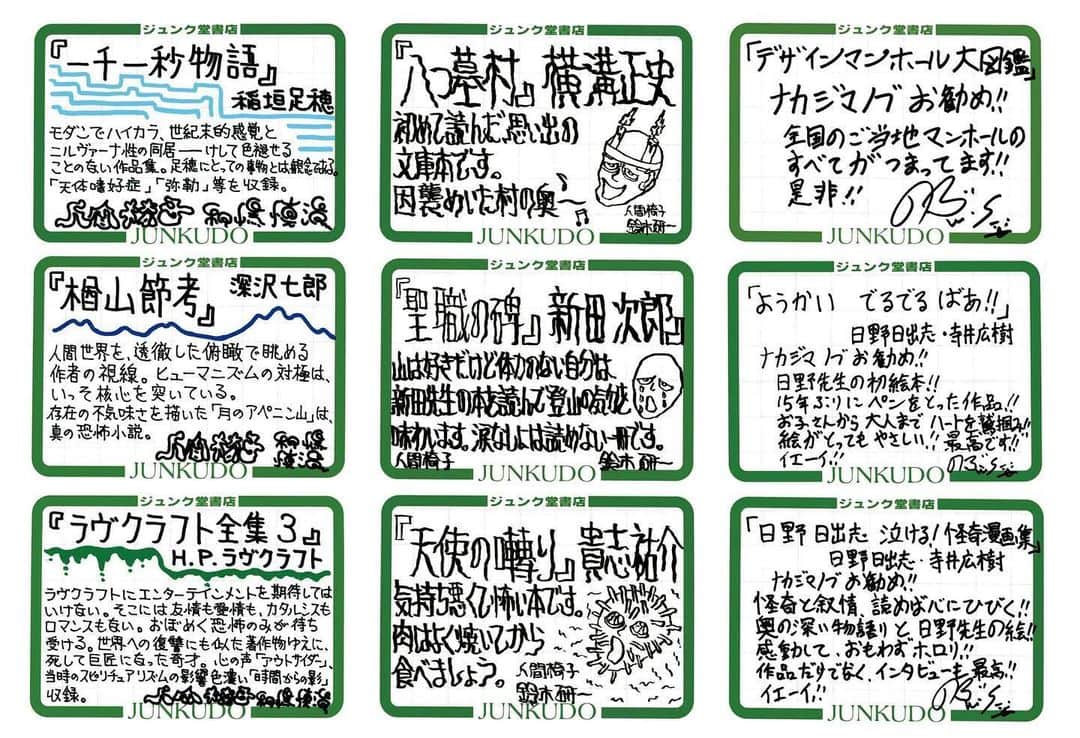 ジュンク堂書店
『一千一秒物語』
稲垣足穂
モダンでハイカラ、世紀末的感覚と
ニルヴァーナ性の同居――けして色褪せる
ことのない作品集。足穂にとっての事物とは観念である。
「天体嗜好症」「弥勒」等を収録。
人間椅子 和嶋慎治
JUNKUDO
ジュンク堂書店
『楢山節考』
深沢七郎
人間世界を、透徹した俯瞰で眺める
作者の視線。ヒューマニズムの対極は、
いっそ核心を突いている。
存在の不気味さを描いた「月のアペニン山」は、
真の恐怖小説。
人間椅子 和嶋
慎治
JUNKUDO
ジュンク堂書店
『ラヴクラフト全集3』
H.P.ラヴクラフト
ラヴクラフトにエンターテインメントを期待しては
いけない。そこには友情も愛情も、カタルシスも
ロマンスもない。おぼめく恐怖のみが待ち
受ける。世界への復讐にも似た著作物ゆえに、
死して巨匠になった奇才。心の声「アウトサイダー」、
当時のスピリチュアリズムの影響色濃い「時間からの影」
収録。
人間椅子 和嶋慎治
JUNKUDO
ジュンク堂書店
『八つ墓村』横溝正史
初めて読んだ、思い出の
文庫本です。
因襲めいた村の奥〜♪
人間椅子
鈴木研一
JUNKUDO
ジュンク堂書店
『聖職の碑』新田次郎
山は好きだけど体力のない自分は
新田先生の本を読んで登山の気分を
味わいます。涙なしには読めない一冊です。
人間椅子 鈴木研一
JUNKUDO
ジュンク堂書店
『天使の囀り』貴志祐介
気持ち悪くて怖い本です。
肉はよく焼いてから
食べましょう。
人間椅子
鈴木研一
JUNKUDO
ジュンク堂書店
「デザインマンホール大図鑑」
ナカジマノブ お勧め!!
全国のご当地マンホールの
すべてがつまってます!!
是非!!
JUNKUDO
ジュンク堂書店
「ようかい でるでるばあ!!」
日野日出志・寺井広樹
ナカジマノブ お勧め!!
日野先生の初絵本!!
15年ぶりにペンをとった作品!!
お子さんから大人まで ハートを鷲掴み!!
絵がとってもやさしい!! 最高です!!
イエーイ!! のぶ
JUNKUDO
ジュンク堂書店
「日野日出志 泣ける!怪奇漫画集」
日野日出志・寺井広樹
ナカジマノブ お勧め!!
怪奇と叙情、読めば心にひびく!!
奥の深い物語りと、日野先生の絵!!
感動して、おもわずホロリ!!
作品だけでなく、インタビューも最高!!
イエーイ!!
JUNKUDO